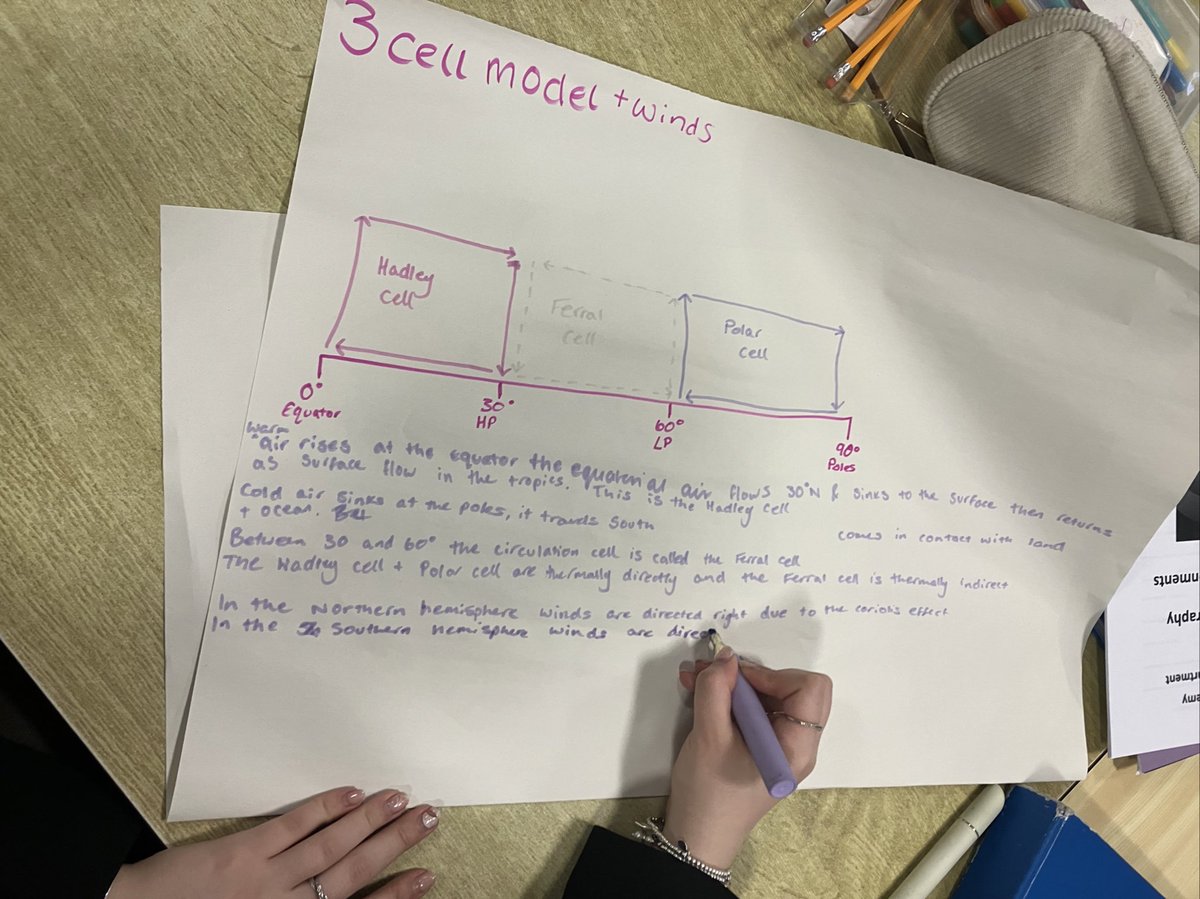 3 cell model + winds
Hadley
cell
Ferral
cell
Polar
cell
0°
Equator
30°
HP
60°
LP
90°
Poles
warm
air rises at the equator the equatorial air flows 30°N & sinks to the surface then returns
as surface flow in the tropics. This is the Hadley cell
Cold air sinks at the poles, it travels South comes in contact with land
+ ocean.
Between 30 and 60° the circulation cell is called the Ferral cell
The Hadley cell + Polar cell are thermally directly and the Ferral cell is thermally indirect
In the Northern hemisphere winds are directed right due to the coriolis effect
In the Southern hemisphere winds are direc
nments
raphy
artment
emy